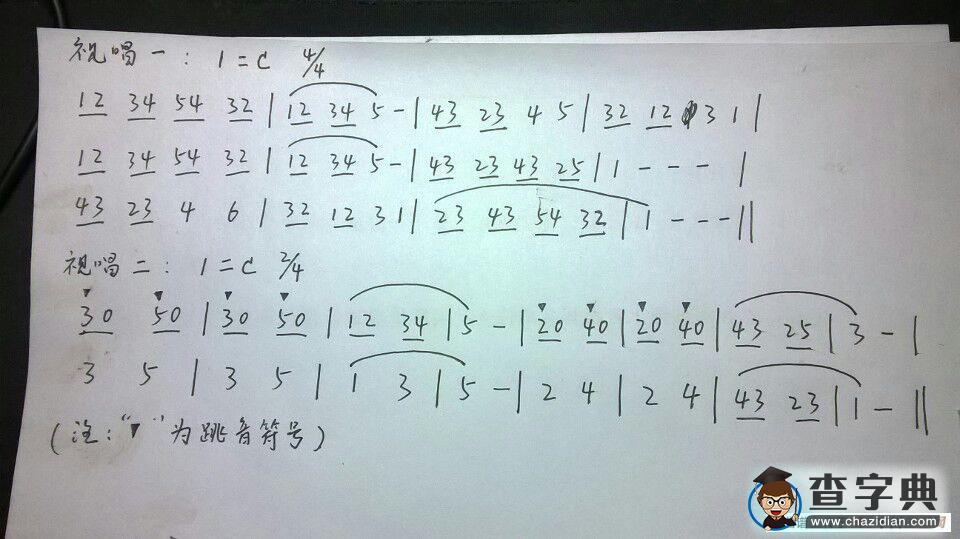 视唱一: 1=C 4/4
12 34 54 32 | 12 34 5 - | 43 23 4 5 | 32 12 3 1 |
12 34 54 32 | 12 34 5 - | 43 23 43 25 | 1 - - - |
43 23 4 6 | 32 12 3 1 | 23 43 54 32 | 1 - - - ||
视唱二: 1=C 2/4
▼ ▼ ▼ ▼ ▼ ▼ ▼ ▼
30 50 | 30 50 | 12 34 | 5 - | 20 40 | 20 40 | 43 25 | 3 - |
3 5 | 3 5 | 1 3 | 5 - | 2 4 | 2 4 | 43 23 | 1 - ||
(注:"▼"为跳音符号)
查字典
www.chazidian.com